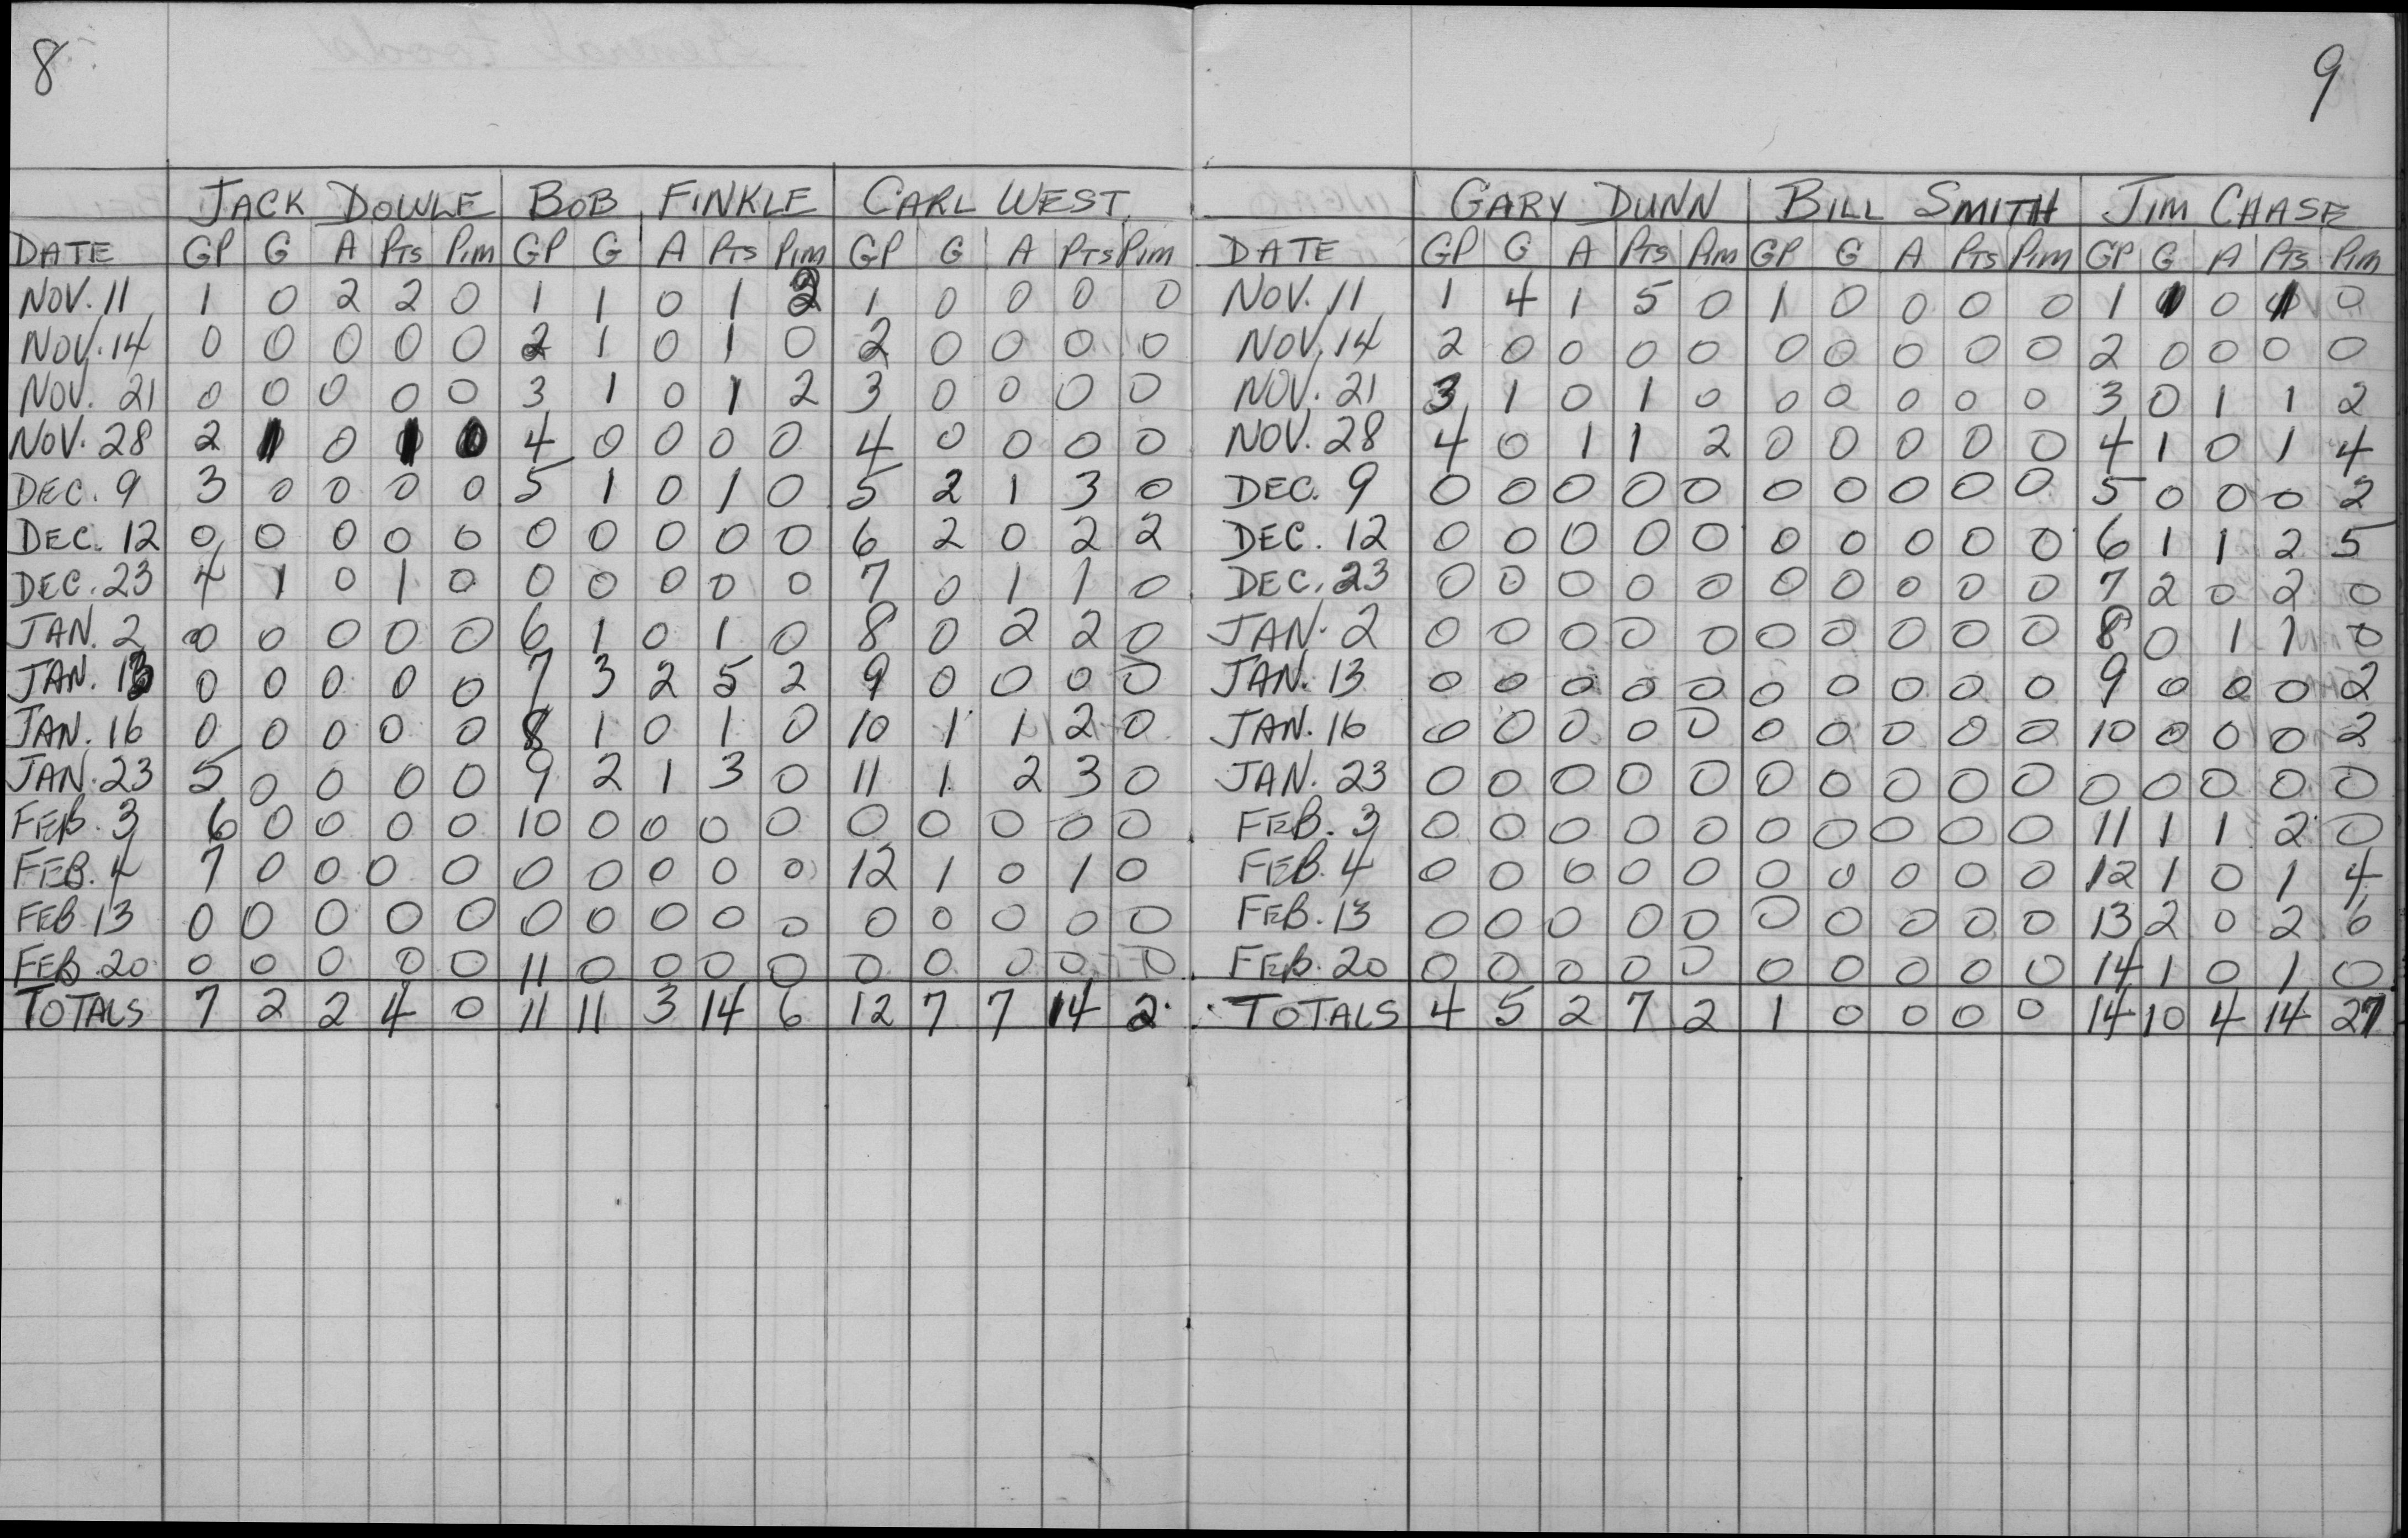 8
JACK DOWLE BOB FINKLE CARL WEST
DATE GP G A PTS PIM GP G A PTS PIM GP G A PTS PIM
NOV. 11 1 0 2 2 0 1 1 0 1 2 1 0 0 0 0
NOV. 14 0 0 0 0 0 2 1 0 1 0 2 0 0 0 0
NOV. 21 0 0 0 0 0 3 1 0 1 2 3 0 0 0 0
NOV. 28 2 1 0 1 0 4 0 0 0 0 4 0 0 0 0
DEC. 9 3 0 0 0 0 5 1 0 1 0 5 2 1 3 0
DEC. 12 0 0 0 0 0 0 0 0 0 0 6 2 0 2 2
DEC. 23 4 1 0 1 0 0 0 0 0 0 7 0 1 1 0
JAN. 2 0 0 0 0 0 6 1 0 1 0 8 0 2 2 0
JAN. 13 0 0 0 0 0 7 3 2 5 2 9 0 0 0 0
JAN. 16 0 0 0 0 0 8 1 0 1 0 10 1 1 2 0
JAN. 23 5 0 0 0 0 9 2 1 3 0 11 1 2 3 0
FEB. 3 6 0 0 0 0 10 0 0 0 0 0 0 0 0 0
FEB. 4 7 0 0 0 0 0 0 0 0 0 12 1 0 1 0
FEB 13 0 0 0 0 0 0 0 0 0 0 0 0 0 0 0
FEB. 20 0 0 0 0 0 11 0 0 0 0 0 0 0 0 0
TOTALS 7 2 2 4 0 11 11 3 14 6 12 7 7 14 2
9
GARY DUNN BILL SMITH JIM CHASE
DATE GP G A PTS PIM GP G A PTS PIM GP G A PTS PIM
NOV. 11 1 4 1 5 0 1 0 0 0 0 1 1 0 1 0
NOV. 14 2 0 0 0 0 0 0 0 0 0 2 0 0 0 0
NOV. 21 3 1 0 1 0 0 0 0 0 0 3 0 1 1 2
NOV. 28 4 0 1 1 2 0 0 0 0 0 4 1 0 1 4
DEC. 9 0 0 0 0 0 0 0 0 0 0 5 0 0 0 2
DEC. 12 0 0 0 0 0 0 0 0 0 0 6 1 1 2 5
DEC. 23 0 0 0 0 0 0 0 0 0 0 7 2 0 2 0
JAN. 2 0 0 0 0 0 0 0 0 0 0 8 0 1 1 0
JAN. 13 0 0 0 0 0 0 0 0 0 0 9 0 0 0 2
JAN. 16 0 0 0 0 0 0 0 0 0 0 10 0 0 0 2
JAN. 23 0 0 0 0 0 0 0 0 0 0 0 0 0 0 0
FEB. 3 0 0 0 0 0 0 0 0 0 0 11 1 1 2 0
FEB. 4 0 0 0 0 0 0 0 0 0 0 12 1 0 1 4
FEB. 13 0 0 0 0 0 0 0 0 0 0 13 2 0 2 6
FEB. 20 0 0 0 0 0 0 0 0 0 0 14 1 0 1 0
TOTALS 4 5 2 7 2 1 0 0 0 0 14 10 4 14 27